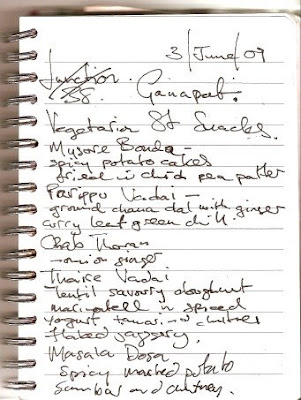 3/June/09
Junction.
38. Ganapati.
Vegetarian St Snacks.
Mysore Bonda -
spicy potato cakes
fried in chick pea batter
Parippu Vadai -
ground chana dal with ginger
curry leaf green chilli.
Thoran
onion ginger
Thaire Vadai
lentil savoury doughnut
marinated in spiced
yogurt tamarind chutney
flaked jaggery.
Masala Dosa
spicy mashed potato
Sambar and chutney.